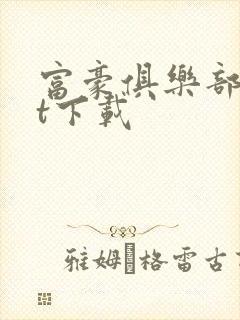 富豪俱樂部
t下載
雅姆·格雷古